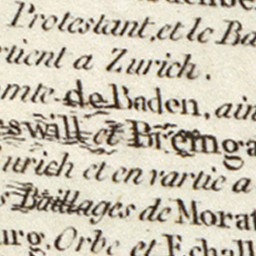 Protestant, et le Ba
rtient a Zurich.
omte de Baden, ain
eswill et Bremga
urich et en partie a
s Baillages de Morat
urg. Orbe et Echall